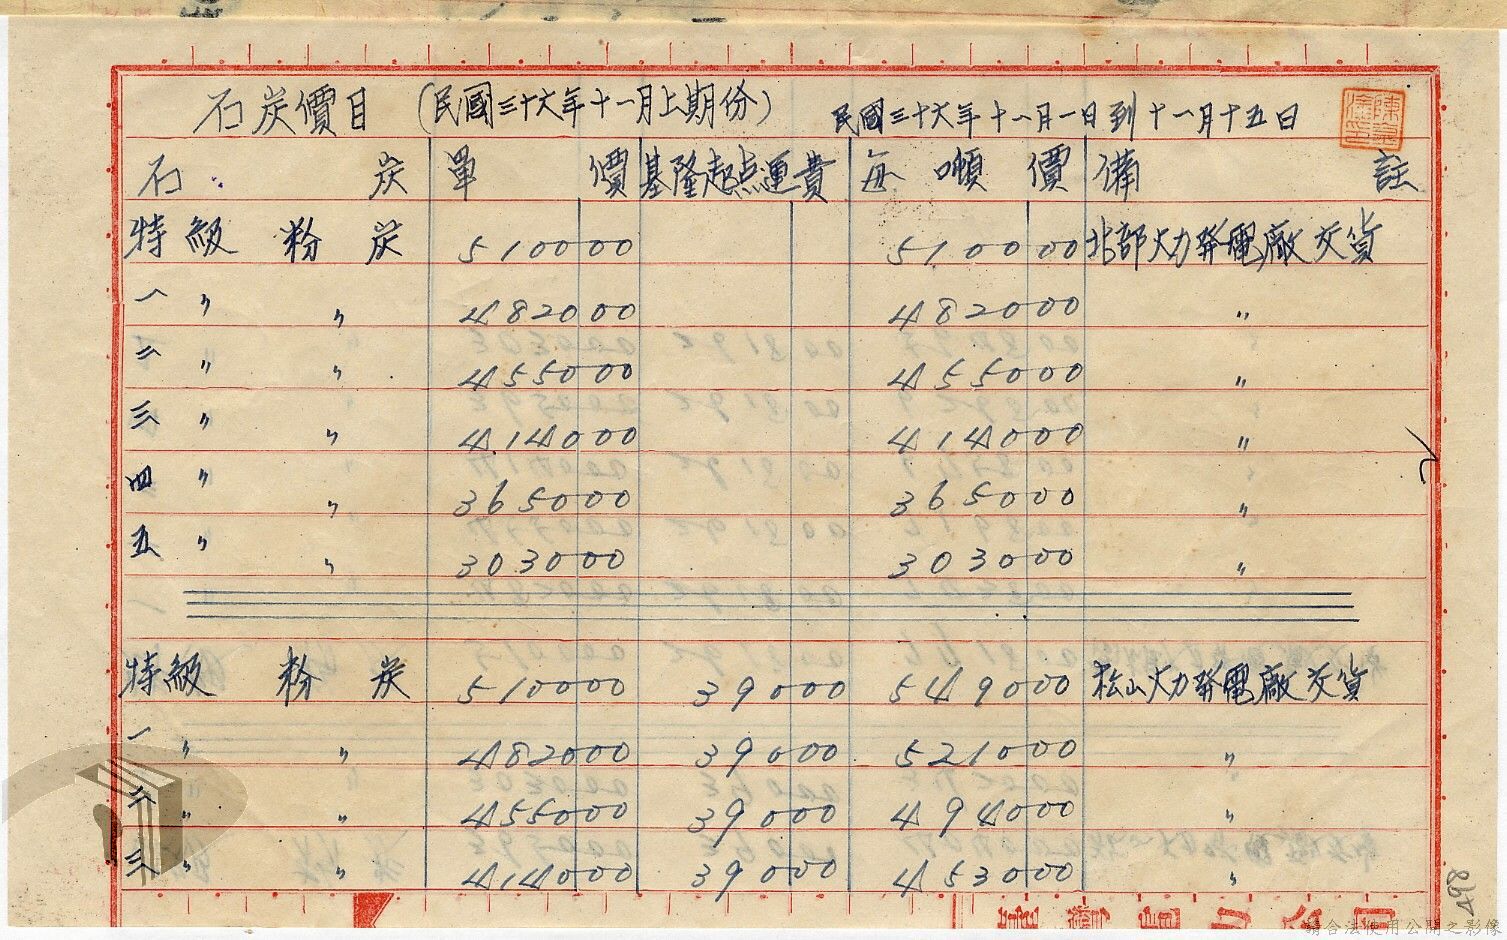 石炭價目（民國三十六年十一月上期份） 民國三十六年十一月一日到十一月十五日
石炭 單價 基隆起点運費 每噸價 備註
特級粉炭 510000 510000 北部火力發電廠交貨
一〃〃 482000 482000 〃
二〃〃 455000 455000 〃
三〃〃 414000 414000 〃
四〃〃 365000 365000 〃
五〃〃 303000 303000 〃
特級粉炭 510000 39000 549000 松山火力發電廠交貨
一〃〃 482000 39000 521000 〃
二〃〃 455000 39000 494000 〃
三〃〃 414000 39000 453000 〃
498
請合法使用公開之影像